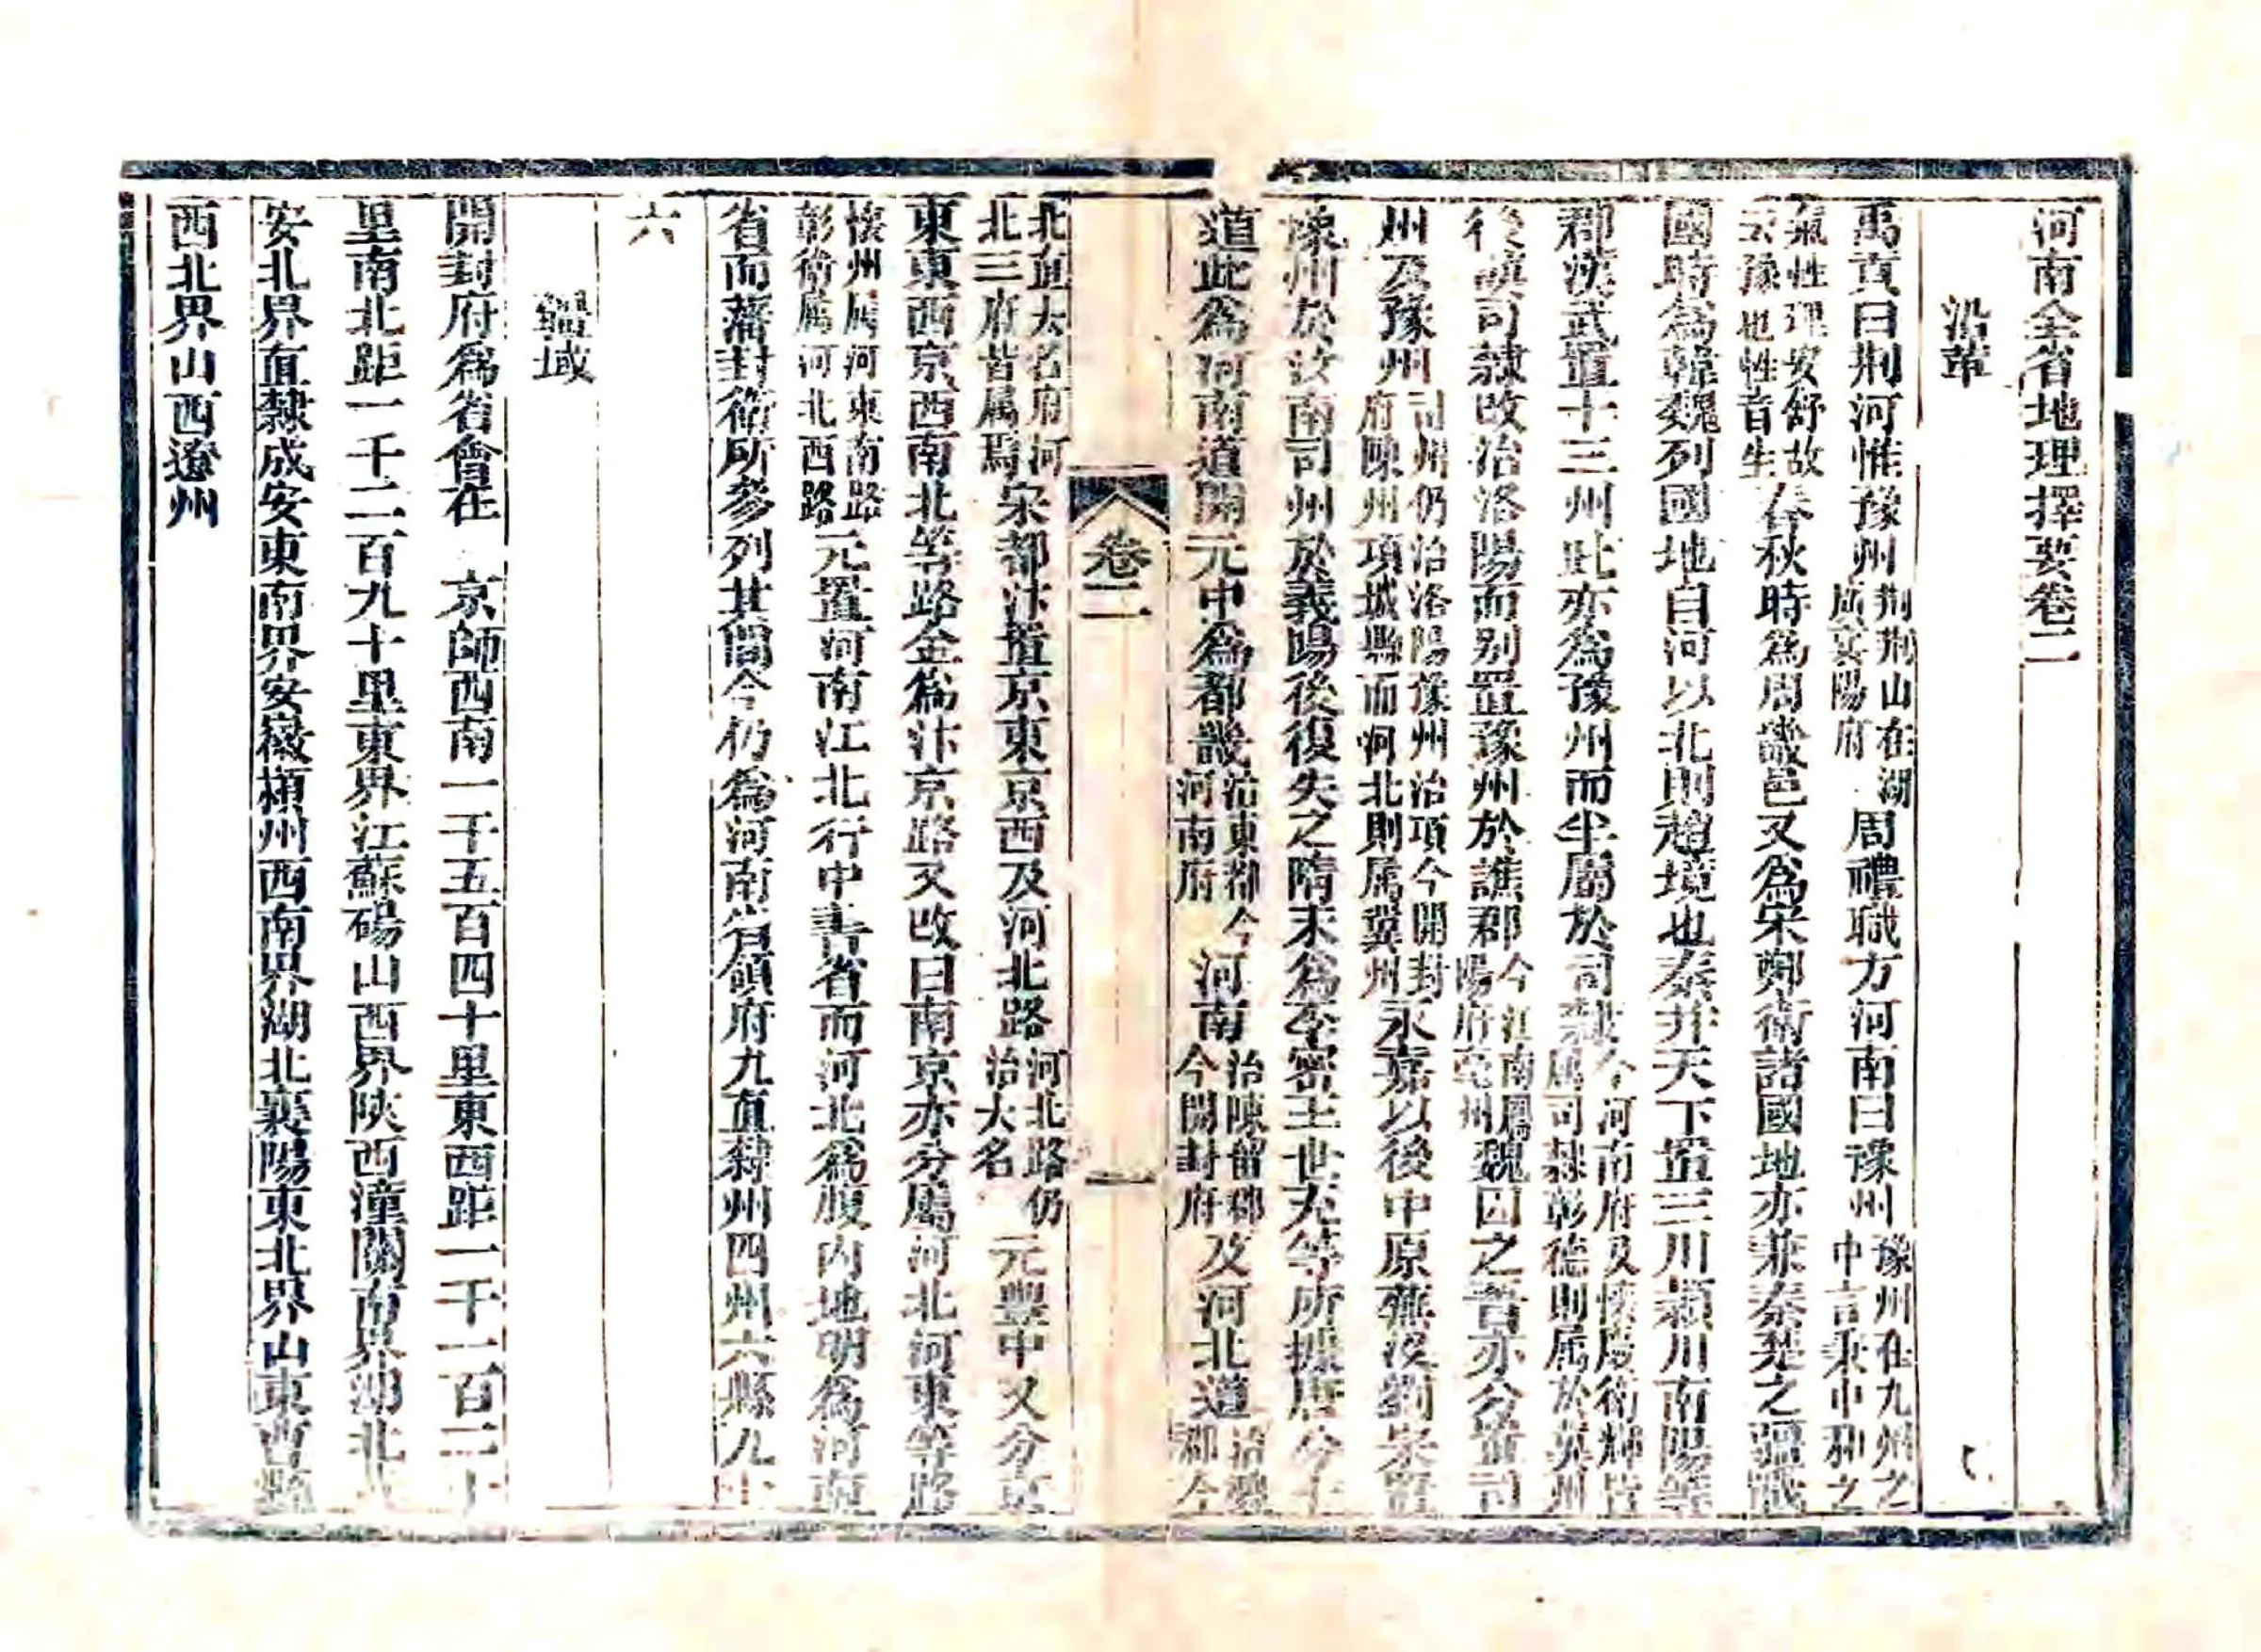 河南全省地理擇要卷二
沿革
禹貢曰荆河惟豫州荆荆山在湖廣襄陽府周禮職方河南曰豫州豫州在九州之中言秉中和之
氣性理安舒故云豫也性音生春秋時為周畿邑又為宋鄭衛諸國地亦兼秦楚之疆戰
國時為韓魏列國地自河以北則趙境也秦并天下置三川潁川南陽等
郡漢武置十三州此亦為豫州而半屬於司隸今河南府及懷慶衛輝皆属司隸彰德則属於冀州
後漢司隸改治洛陽而别置豫州於譙郡今江南鳳陽府亳州魏因之晉亦分置司
州及豫州司州仍治洛陽豫州治項今開封府陳州項城縣而河北則属冀州永嘉以後中原蕪没劉宋置
豫州於汝南司州於義陽後復失之隋末為李密王世充等所據唐分十
道此為河南道開元中為都畿治東都今河南府河南治陳留郡今開封府及河北道治魏郡今
卷二
一
北直大名府河北三府皆属焉宋都汴置京東京西及河北路河北路仍治大名元豐中又分京
東東西京西南北等路金為汴京路又改曰南京亦分屬河北河東等路
懷州属河東南路彰衛属河北西路元置河南江北行中書省而河北為腹内地明為河南
省而藩封衛所參列其間今仍為河南省領府九直隸州四州六縣九十
六
疆域
開封府為省會在 京師西南一千五百四十里東西距一千一百二十
里南北距一千二百九十里東界江蘇碭山西界陝西潼關南界湖北
安北界直隸成安東南界安徽潁州西南界湖北襄陽東北界山東曹縣
西北界山西遼州